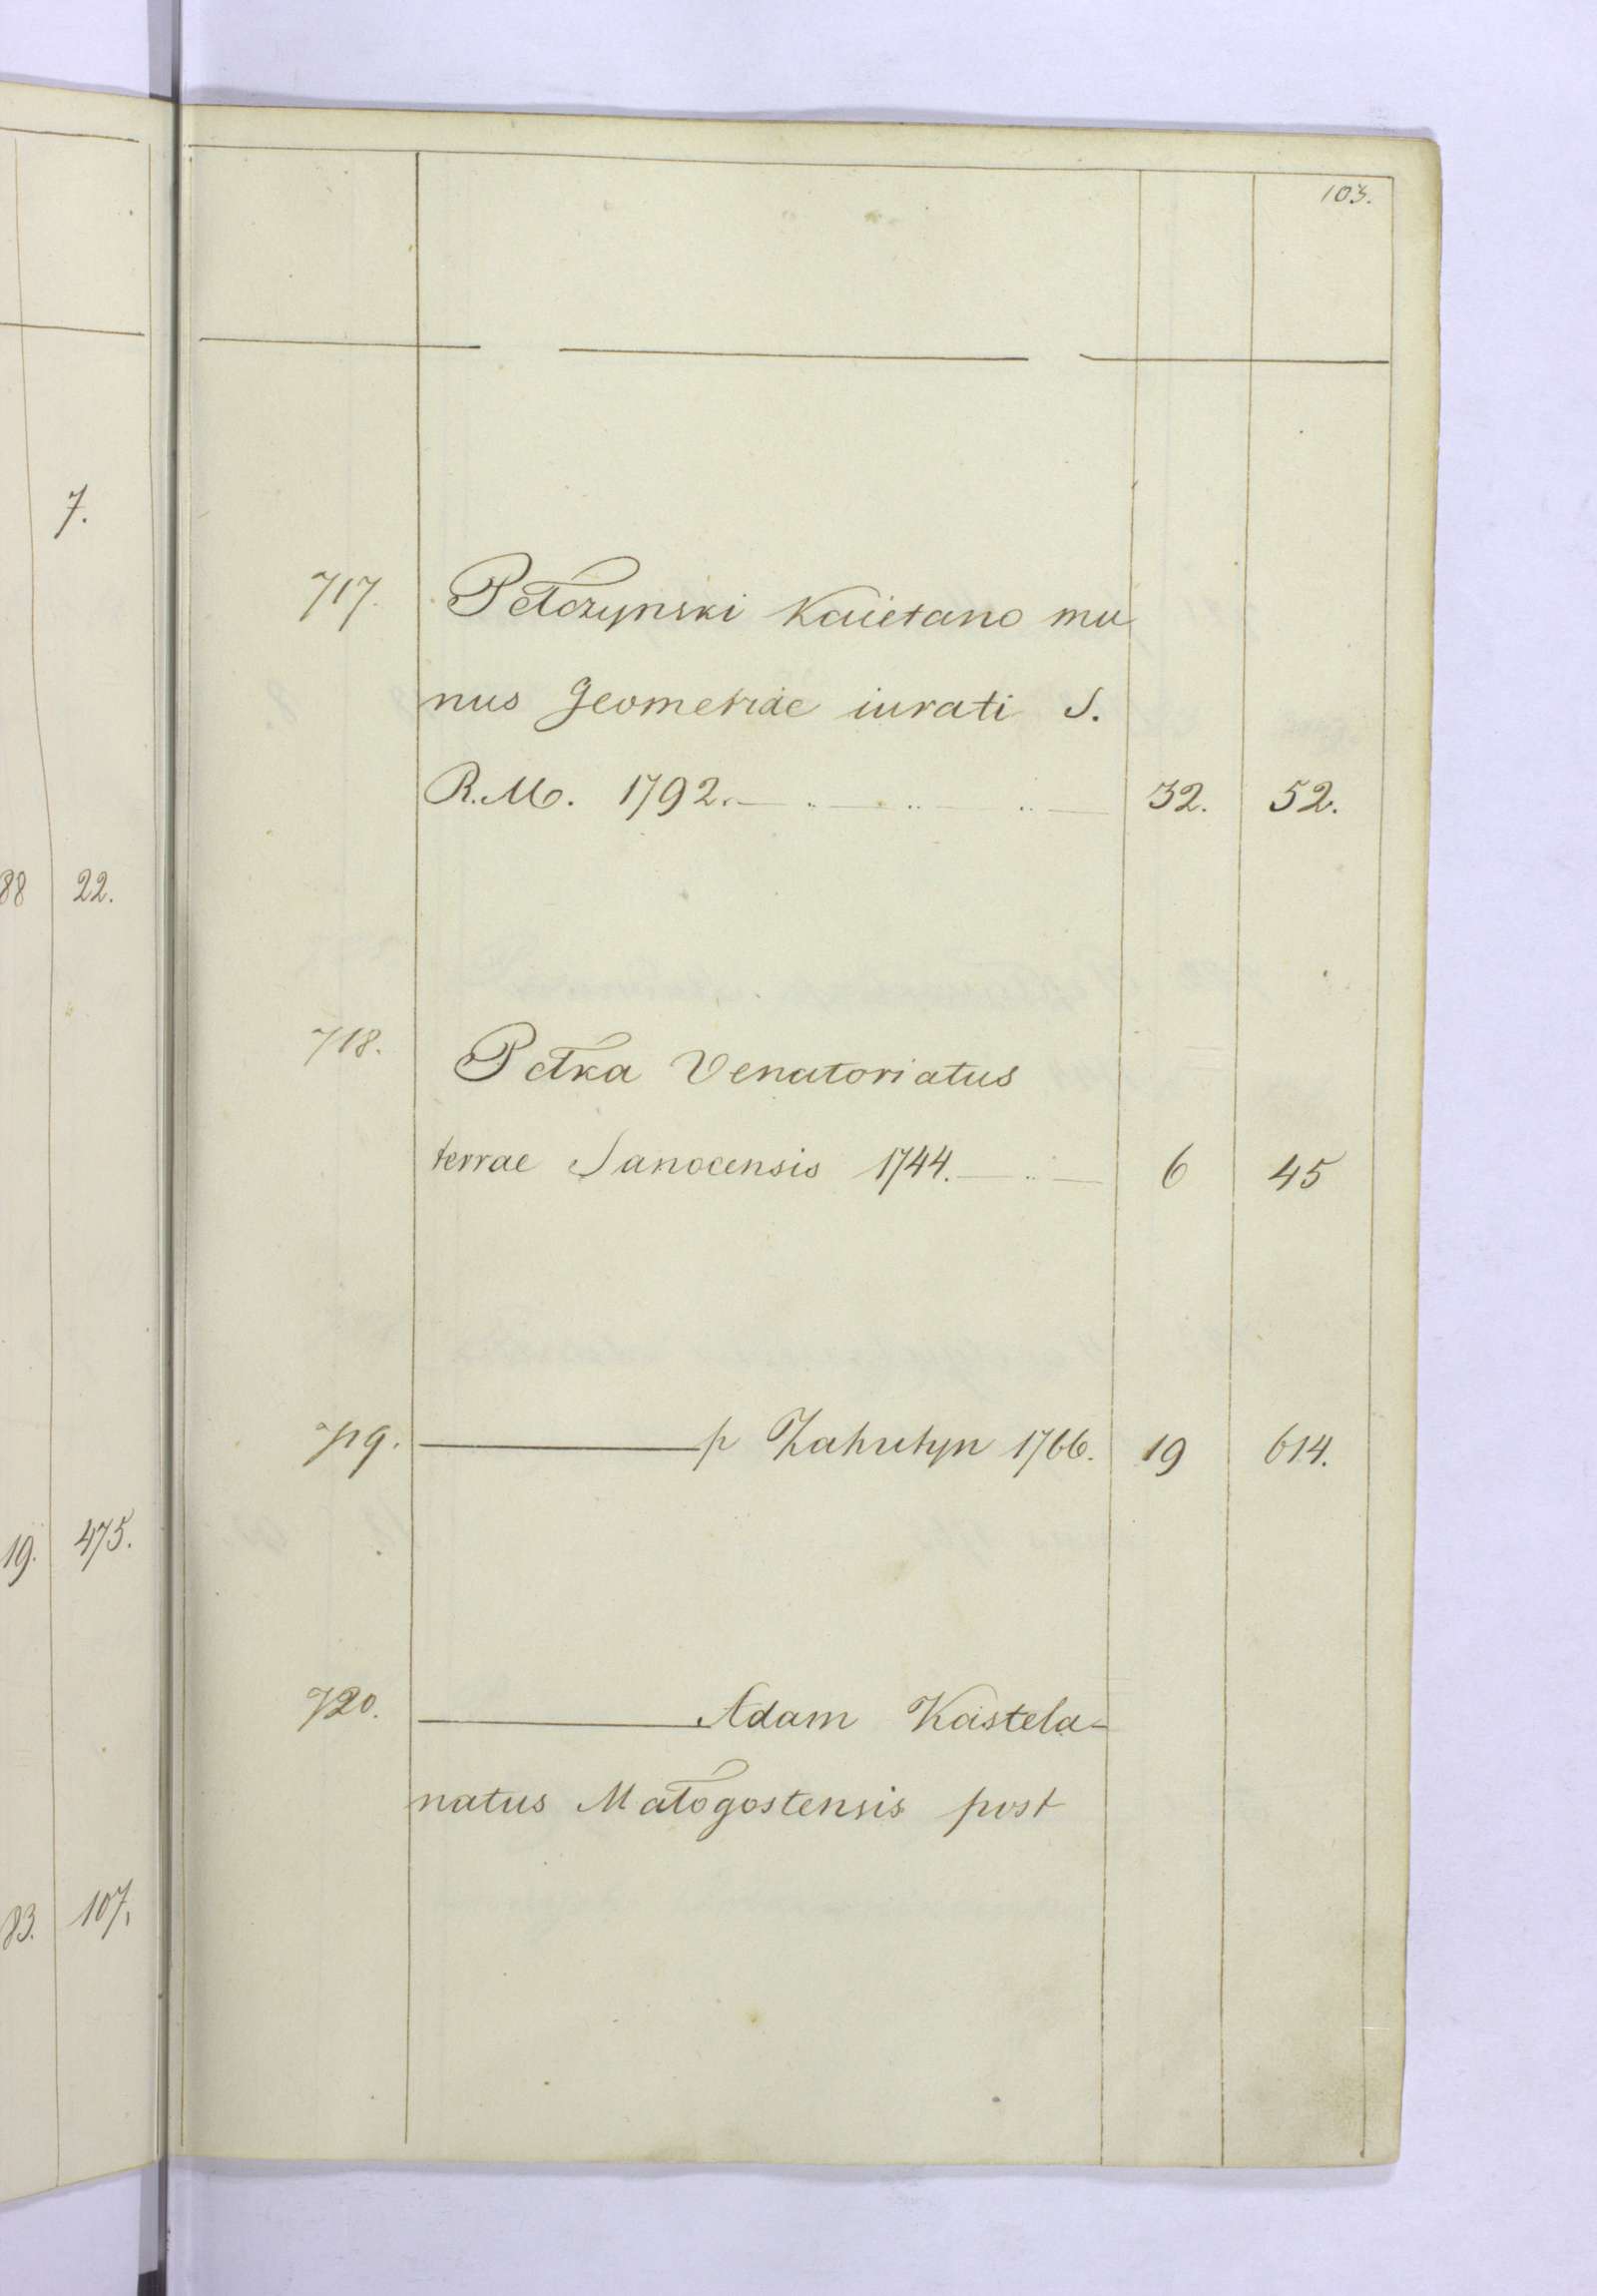 103.
7.
717. Pełczynski Kaietano mu
nus Geometrae iurati S.
R. M. 1792. 32. 52.
88 22.
718. Pełka Venatoriatus
terrae Sanocensis 1744. 6 45
719. ——— p Zahutyn 1766. 19 614.
19. 475.
720. ——— Adam Kastela-
natus Małogostensis post
83. 107.